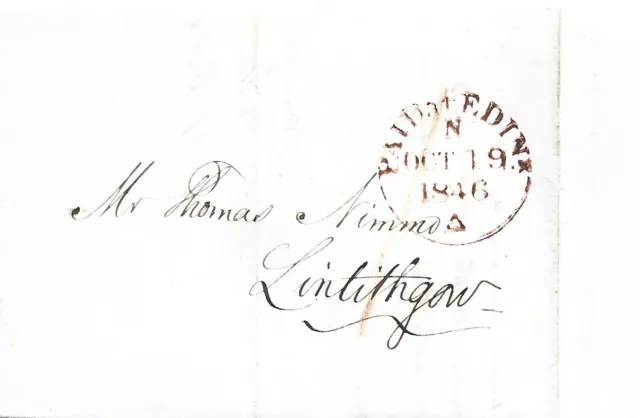 PAID at EDINR
N
OCT 19.
1846
Mr Thomas Nimmo
Linlithgow